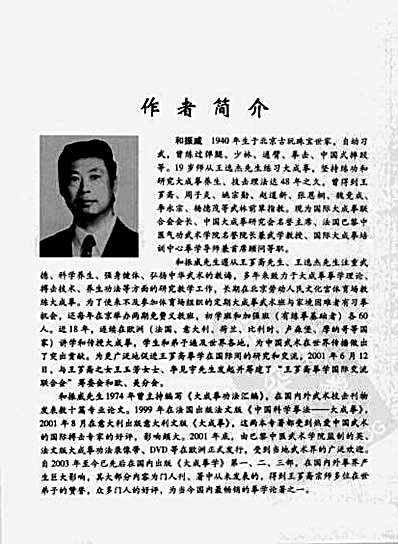 作者简介
和振威 1940年生于北京古玩珠宝世家，自幼习
武，曾练过弹腿、少林、通臂、拳击、中国式摔跤
等。19岁师从王选杰先生练习大成拳，坚持练功和
研究大成拳养生、技击理法达48年之久，曾得到王
芗斋、周子炎、姚宗勋、赵道新、张恩桐、魏竞成、
于永宗、杨德茂等武林前辈指教。现为国际大成拳联
合会会长、中国大成拳研究会名誉主席、法国巴黎中
医气功武术学院名誉院长兼武学教授、国际大成拳培
训中心拳学导师兼首席顾问等职。
和振威先生遵从王芗斋先生、王选杰先生注重武
德、科学养生、强身健体、弘扬中华武术的教诲，多年来致力于大成拳拳学理论、
搏击技术、养生功法等方面的研究教学工作，长期在北京劳动人民文化宫体育场教
练大成拳。为了使来不及参加体育场组织的定期大成拳武术班与家境困难者有习拳
机会，还每年在京举办两期免费义教班，初学班和加强班（有练拳基础者）各60
人。近18年，连续在欧洲（法国、意大利、荷兰、比利时、卢森堡、摩纳哥等国
家）讲学和传授大成拳，学生和弟子遍及世界各地，为中国武术在世界传播做出
了突出贡献。为更广泛地促进王芗斋拳学在国际间的研究和交流，2001年6月12
日，与王芗斋之女王玉芳女士、李见宇先生发起并筹建了“王芗斋拳学国际交流
联合会”筹委会和欧、美分会。
和振威先生1974年曾主持编写《大成拳功法汇编》，在国内外武术技击刊物
发表数十篇专业论文。1999年在法国出版法文版《中国科学拳法——大成拳》，
2001年8月在意大利出版意大利文版《大成拳》，这两本专著都受到热爱中国武术
的国际搏击专家的好评，影响颇大。2001年底，由巴黎中医武术学院监制的英、
法文版大成拳功法录像带、DVD等在欧洲正式发行，受到当地武术界的广泛欢迎。
自2003年至今已先后在国内出版《大成拳学》第一、二、三部，在国内外拳界产
生巨大影响，其大部分内容为门人刊、著中从未发表的，得到王芗斋宗师多位在世
弟子的赞誉，众多门人的好评，为当今国内最畅销的拳学论著之一。